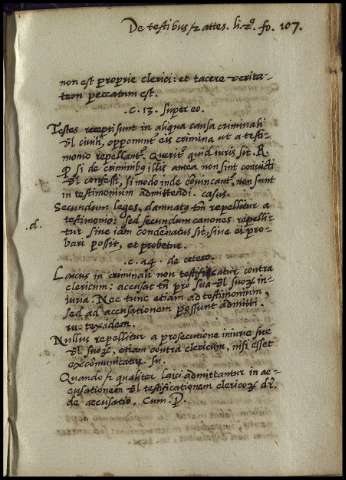 De testibus et attes. li. 2. fo. 107.
non est proprie clerici: et tacere verita-
tem peccatum est.
.c. 13. super eo.
Testes recepti sunt in aliqua causa criminali
vl civili, opponunt eis crimina ut a testi-
monio repellantr. Querit quid iuris sit. R.
P si de criminibus illis antea non sint convicti
vl confessi, si modo inde convincantr, non sunt
in testimonium admittendi. casus.
Secundum leges, damnatus tm repellitur a
.d. testimonio: sed secundum canones repelli-
tur sive iam condenatus sit, sive et pro-
bari possit, et probetur.
.c. 14. de cetero.
Laicus in criminali non testificatur contra
clericum: accusat tm pro sua vl suorum in-
iuria. Nec tunc etiam ad testimonium,
sed ad accusationem possunt admitti.
Nullus repellitur a prosecutione iniurie sue
vl suorum, etiam contra clericum, nisi esset
excommunicatus. su.
Quando et qualiter laici admittantur in ac-
cusationem vl testificationem clericorum dr.
de accusatio. Cum P.